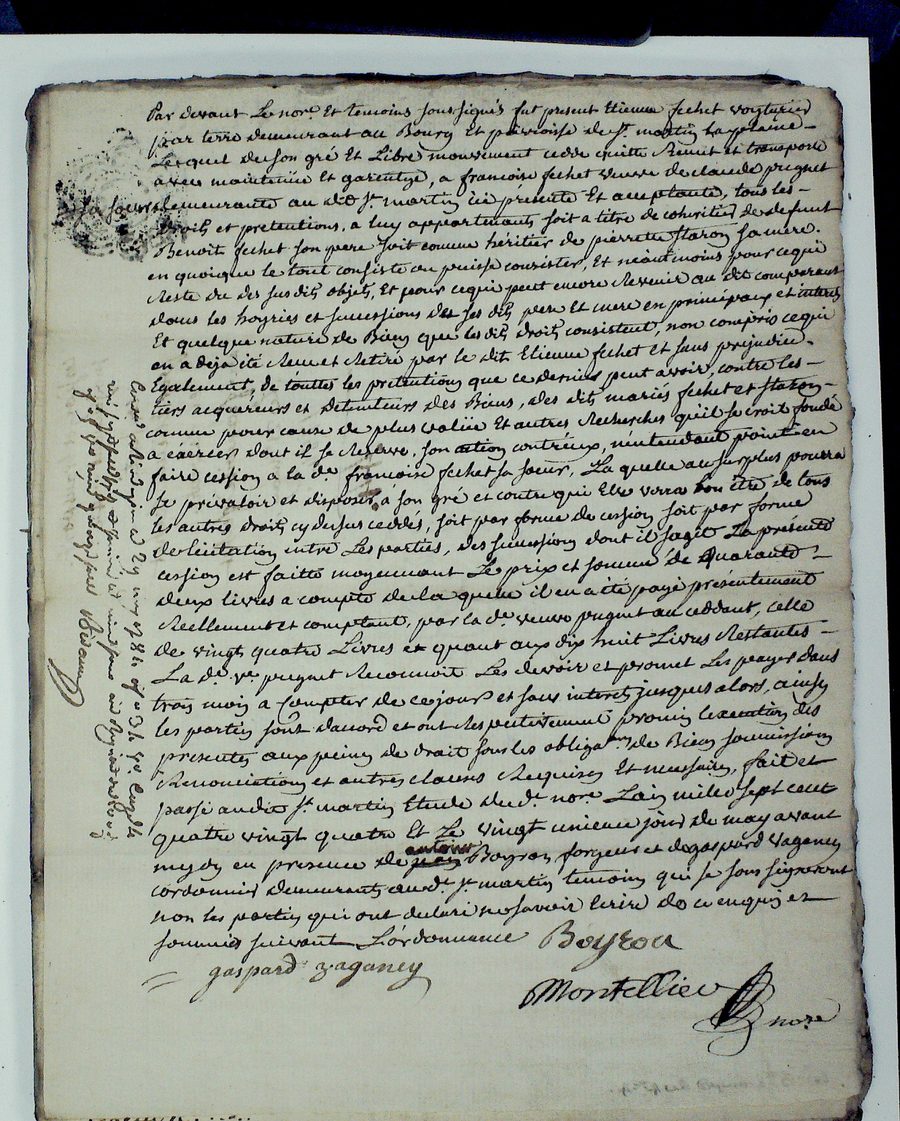 Par devant Le nore Et temoins soussignés fut present Etienne fechet voyturier
par terre demeurant au Bourg Et paroisse de St martin La plaine
Lequel de son gré Et Libre mouvement cedde quitte Remet et transporte
avec maintenüe Et garentye, a francoise fechet veuve de claude pugnet
sa soeur demeurante au dit St martin ici présente Et acceptante, tous les
droits et pretentions, a luy appartenants soit a titre de cohéritier de defunt
Benoit fechet son pere soit comme héritier de pierrette staron sa mere.
en quoique le tout consiste ou puisse consister, Et néantmoins pour cequi
Reste du des susdits objets, Et pour cequi peut encore Revenir au dit comparant
dans les hoyries et successions des ses dits pere Et mere en principaux et interets
Et quelque nature de Biens que lesdits droits consistent, non compris cequi
en a déja été Reçu et Retiré par le dit Etienne fechet Et sans prejudice
Egalement, de touttes les prétentions que ce dernier peut avoir, contre les
tiers acquereurs et detenteurs des Biens, des dits mariés fechet et staron
comme pour cause de plus valüe Et autres Recherches qu'il se croit fondé
a exercer dont il se Reserve, son action contr'eux, n'entendant point en
faire cession a la de francoise fechet sa soeur, La quelle au surplus pourra
se prevaloir et disposer a son gré et contre qui Elle verra bon être de tous
les autres droits cy dessus ceddés, soit par forme de cession soit par forme
de licitation entre Les parties, des succession dont il sagit La présente
cession est faitte moyennant Le prix et somme de Quarante
deux livres a compte de la quelle il en a été payé présentement
Réellement et comptant, par la de veuve pugnet au ceddant, celle
de vingt quatre Livres et quant aux dix huit Livres Restantes
La de ve pugnet Reconnoit Les devoir et promet Les payer dans
trois mois a compter de ce jour et sans interets jusques alors, ainsy
les parties sont d'accord et ont Respectivement promis l'execution des
presentes aux peines de droit sous les obligaons de Biens soumissions
Renonciations et autres clauses Requises Et necessaires, fait et
passé audit St martin Etude dud. nore L'an mille sept cent
quatre vingt quatre Et Le vingt unieme jour de may avant
midy en presence de antoine Boyron forgeur et de gaspard vaganey
cordonnier demeurants aud. St martin temoins qui se sont signeront
non les parties qui ont declaré ne savoir Ecrire de ce enquis et
sommés suivant L'ordonnance Boyron
gaspard vaganey
Montellier nore